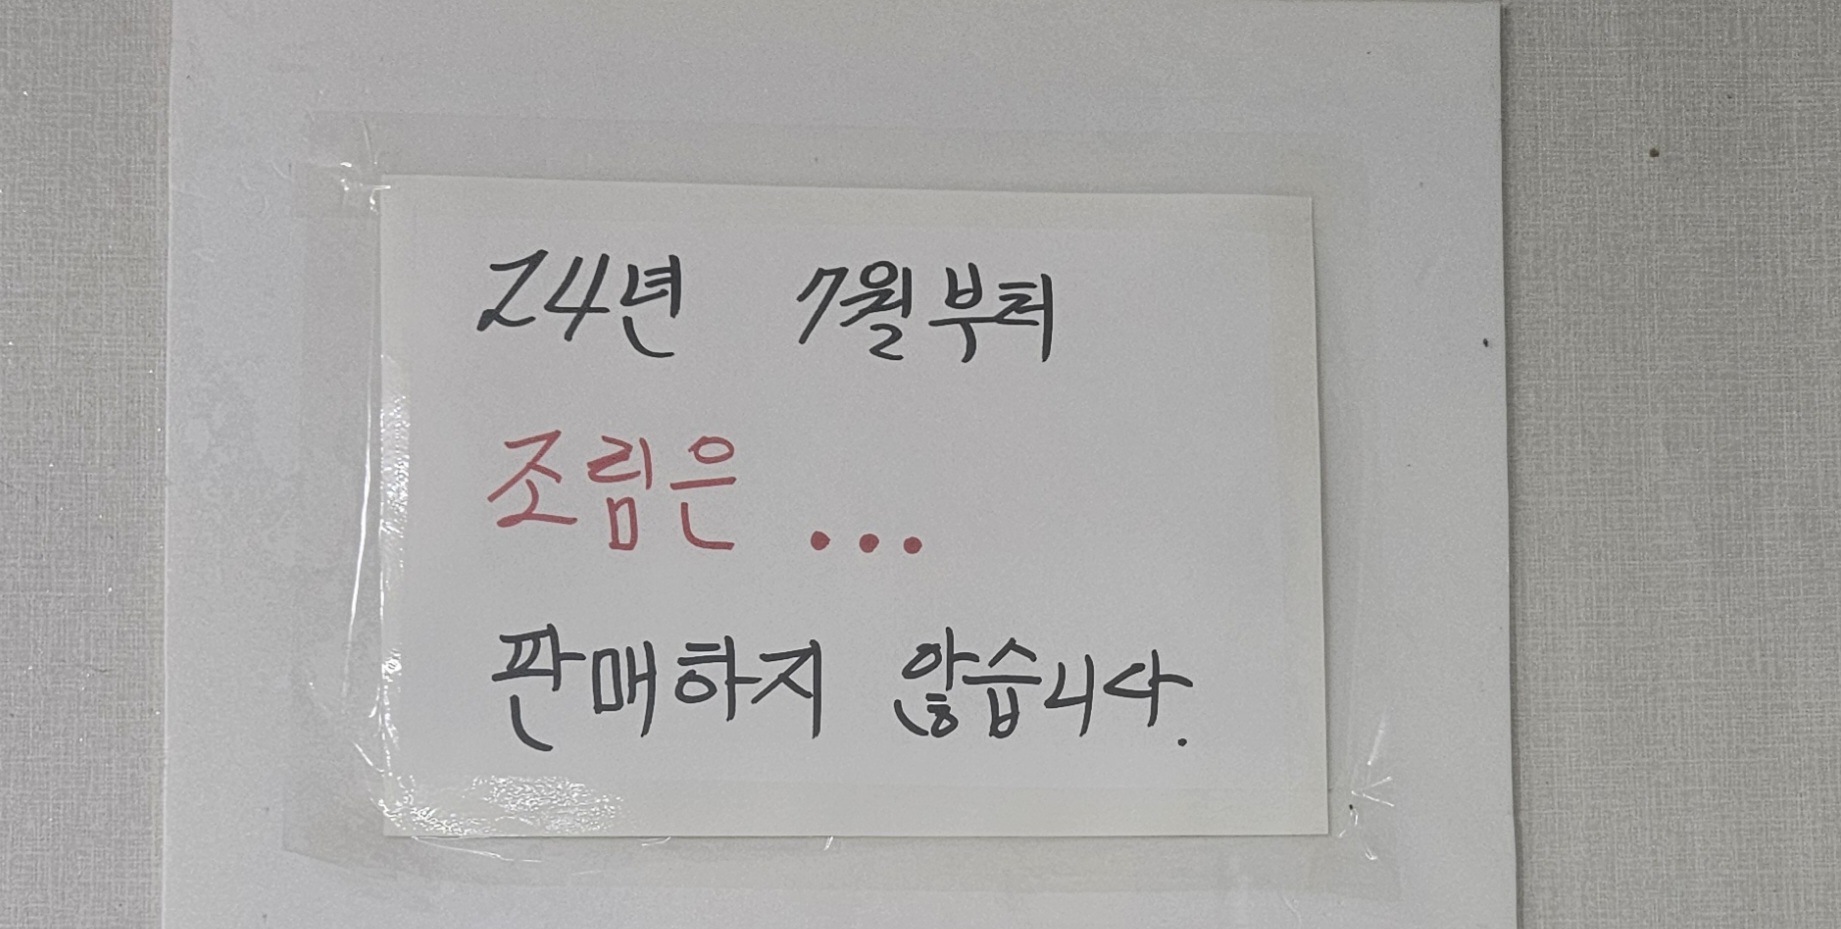 24년 7월부터
조림은 ...
판매하지 않습니다.